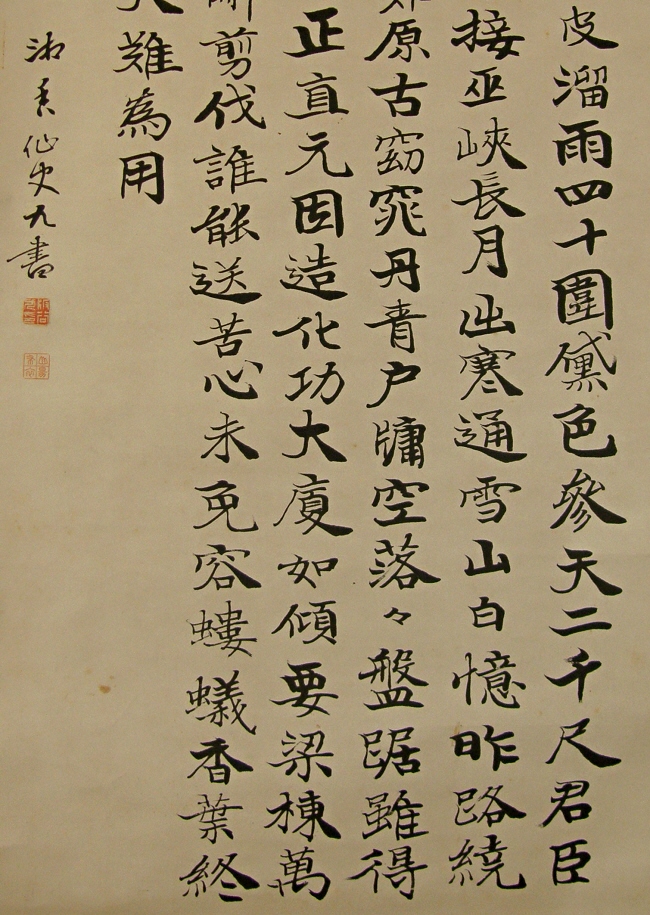 皮溜雨四十圍黛色參天二千尺君臣
接巫峽長月出寒通雪山白憶昨路繞
原古窈窕丹青户牖空落々盤踞雖得
正直元因造化功大廈如傾要梁棟萬
剪伐誰能送苦心未免容螻蟻香葉終
難為用
湘仙史書